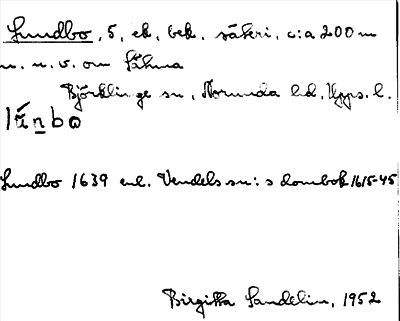 Lundbo, 5, ek, bek. säteri, c:a 200 m
n. n. v. om Sätuna
Björklinge sn, Norunda hd, Upps. l.
Lundbo 1639 enl. Vendels sn:s dombok 1615-45
Birgitta Sandelin, 1952